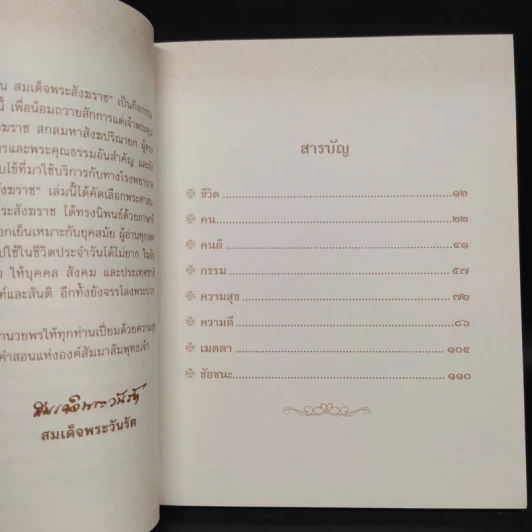 น สมเด็จพระสังฆราช" เป็นกิจกรรม
นี้ เพื่อน้อมถวายสักการแด่เจ้าพระคุณ
ังฆราช สกลมหาสังฆปริณายก
ารและพระคุณธรรมอันสำคัญ
บไข้ที่มาใช้บริการกับทางโรงพยาบาล
ังฆราช" เล่มนี้ได้คัดเลือกพระศาสน
ระสังฆราช ได้ทรงนิพนธ์ด้วยภาษาที่
อกเย็นเหมาะกับยุคสมัย ผู้อ่านทุกเพศ
ปใช้ในชีวิตประจำวันได้ไม่ยาก
ให้บุคคล สังคม และประเทศชาติ
ท์และสันติ อีกทั้งยังจรรโลงพระบวร
ำนวยพรให้ทุกท่านเปี่ยมด้วยความสุข
คำสอนแห่งองค์สัมมาสัมพุทธเจ้า
สมเด็จพระวันรัต
สมเด็จพระวันรัต
สารบัญ
ชีวิต ... ๑๒
คน ... ๒๒
คนดี ... ๔๑
กรรม ... ๕๗
ความสุข ... ๗๒
ความดี ... ๘๖
เมตตา ... ๑๐๔
ชัยชนะ ... ๑๑๐